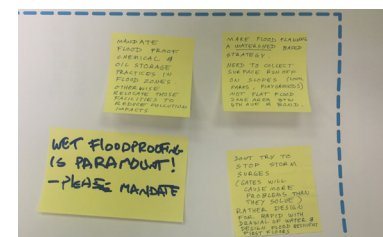 MANDATE
FLOOD PROOF
CHEMICAL &
OIL STORAGE
PRACTICES IN
FLOOD ZONES
OTHERWISE
RELOCATE THOSE
FACILITIES TO
REDUCE POLLUTION
IMPACTS
MAKE FLOOD PLANNING
A WATERSHED BASED
STRATEGY.
NEED TO COLLECT
SURFACE RUN OFF
ON SLOPES
PARKS, PLAYGROUNDS)
NOT FLAT FLOOD
ZONE AREA BTW
9TH AVE & BOND.
WET FLOODPROOFING
IS PARAMOUNT!
- PLEASE MANDATE
DON'T TRY TO
STOP STORM
SURGES
(GATES WILL
CAUSE MORE
PROBLEMS THAN
THEY SOLVE)
RATHER DESIGN
FOR RAPID WITH
DRAWAL OF WATER &
DESIGN FLOOD RESILIENT
FIRST FLOORS